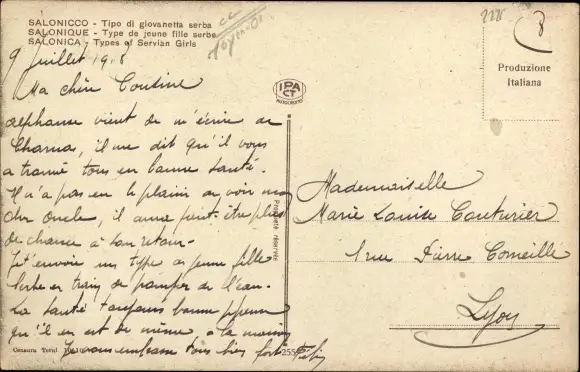 SALONICCO - Tipo di giovanetta serba
SALONIQUE - Type de jeune fille serbe
SALONICA - Types of Servian Girls
9 juillet 1918
Ma chère Cousine
Alphonse vient de m'écrire de
Charnas, il me dit qu'il vous
a trouvé tous en bonne santé.
Il n'a pas eu le plaisir de voir mon
cher Oncle, il aura peut-être plus
de chance à son retour -
Je t'envoie un type de jeune fille
Serbe en train de pomper de l'eau.
La santé toujours bonne j'espère
qu'il en est de même à la maison
Je vous embrasse tous bien fort
Proprietà riservata
IPA CT
2228
Produzione
Italiana
Mademoiselle
Marie Louise Couturier
1 rue Pierre Corneille
Lyon
Censura Torino
255